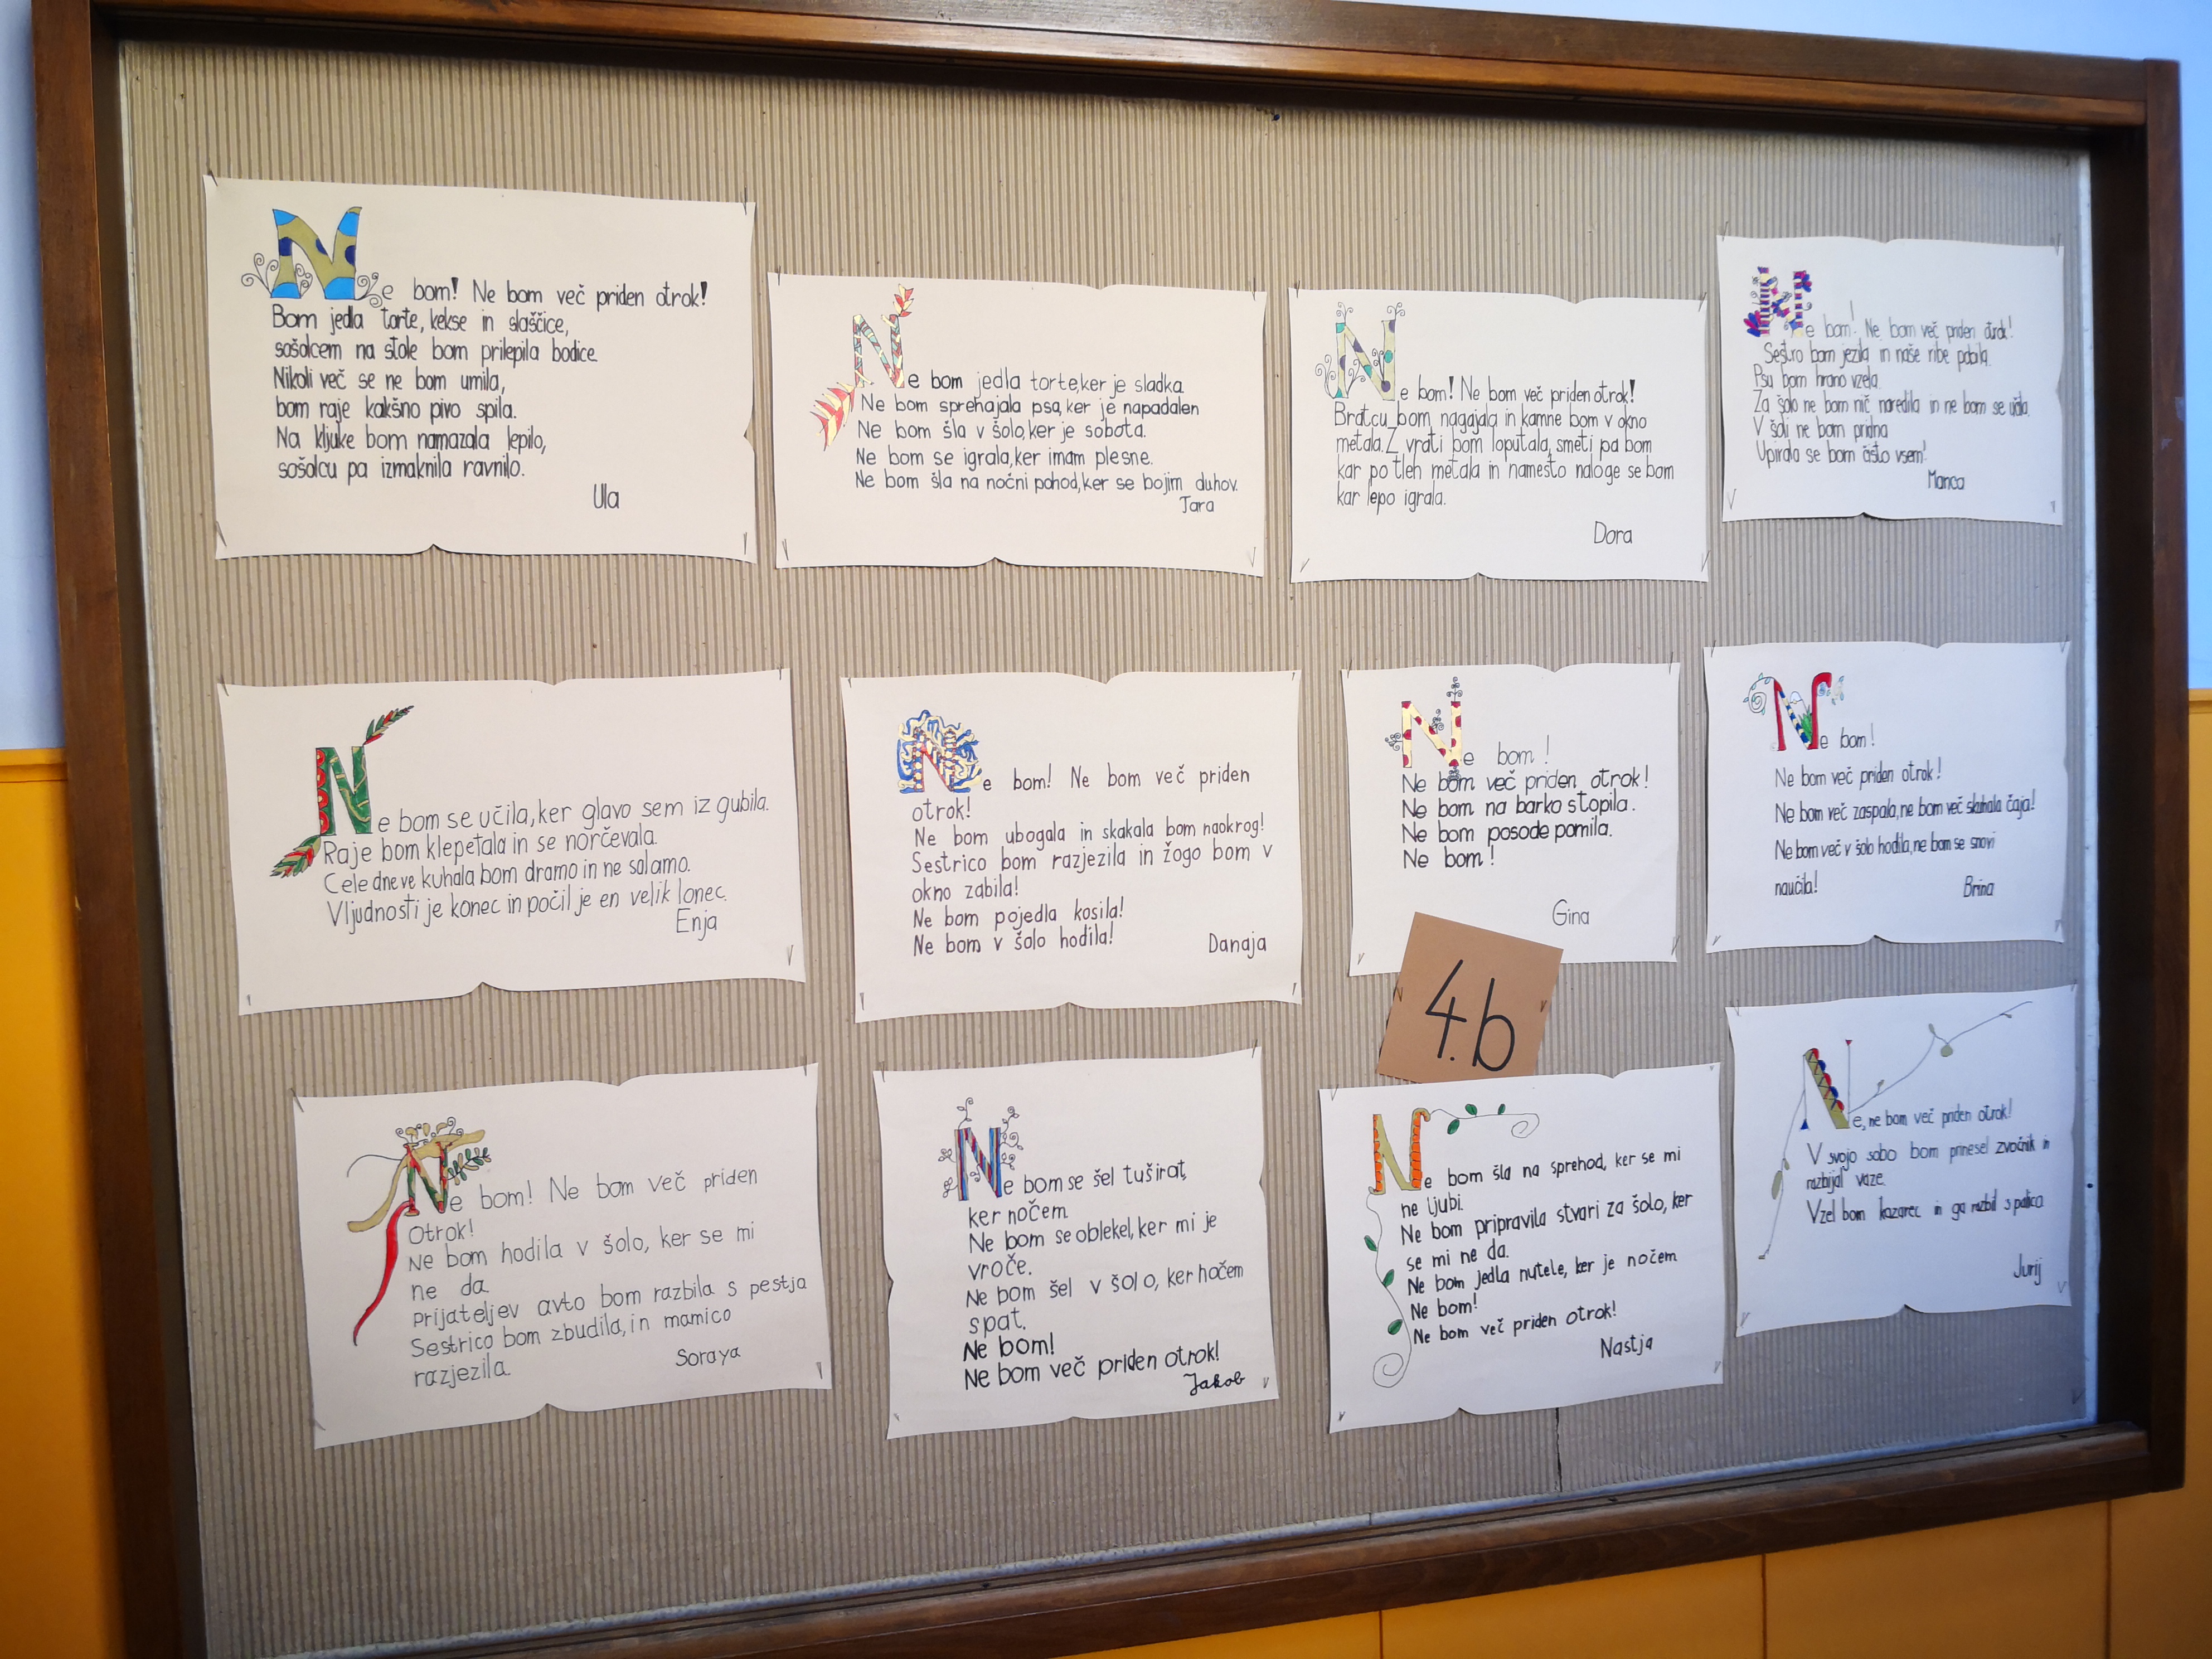 Ne bom! Ne bom več priden otrok!
Bom jedla torte, kekse in slaščice,
sošolcem na stole bom prilepila bodice.
Nikoli več se ne bom umila,
bom raje kakšno pivo spila.
Na kljuke bom namazala lepilo,
sošolcu pa izmaknila ravnilo.
Ula
Ne bom jedla torte, ker je sladka.
Ne bom sprehajala psa, ker je napadalen
Ne bom šla v šolo, ker je sobota.
Ne bom se igrala, ker imam plesne.
Ne bom šla na nočni pohod, ker se bojim duhov.
Tara
Ne bom! Ne bom več priden otrok!
Bratcu bom nagajala in kamne bom v okno
metala. Z vrati bom loputala, smeti pa bom
kar po tleh metala in namesto naloge se bom
kar lepo igrala.
Dora
Ne bom! Ne bom več priden otrok!
Sestro bom jezila in naše ribe pobila.
Psu bom hrano vzela.
Za šolo ne bom nič naredila in ne bom se učila.
V šoli ne bom pridna
Upirala se bom čisto vsem!
Manca
Ne bom se učila, ker glavo sem iz gubila.
Raje bom klepetala in se norčevala.
Cele dneve kuhala bom dramo in ne salamo.
Vljudnosti je konec in počil je en velik lonec.
Enja
Ne bom! Ne bom več priden
otrok!
Ne bom ubogala in skakala bom naokrog!
Sestrico bom razjezila in žogo bom v
okno zabila!
Ne bom pojedla kosila!
Ne bom v šolo hodila!
Danaja
Ne bom!
Ne bom več priden otrok!
Ne bom na barko stopila.
Ne bom posode pomila.
Ne bom!
Gina
Ne bom!
Ne bom več priden otrok!
Ne bom več zaspala, ne bom več skuhala čaja!
Ne bom več v šolo hodila, ne bom se snovi
naučila!
Brina
4.b
Ne bom! Ne bom več priden
Otrok!
Ne bom hodila v šolo, ker se mi
ne da.
Prijateljev avto bom razbila s pestjo
Sestrico bom zbudila, in mamico
razjezila.
Soraya
Ne bom se šel tuširat,
ker nočem
Ne bom se oblekel, ker mi je
vroče.
Ne bom šel v šolo, ker hočem
spat.
Ne bom!
Ne bom več priden otrok!
Jakob
Ne bom šla na sprehod, ker se mi
ne ljubi.
Ne bom pripravila stvari za šolo, ker
se mi ne da.
Ne bom jedla nutele, ker je nočem
Ne bom!
Ne bom več priden otrok!
Nastja
Ne, ne bom več priden otrok!
V svojo sobo bom prinesel zvočnik in
razbijal vaze.
Vzel bom kozarec in ga razbil s palico
Jurij